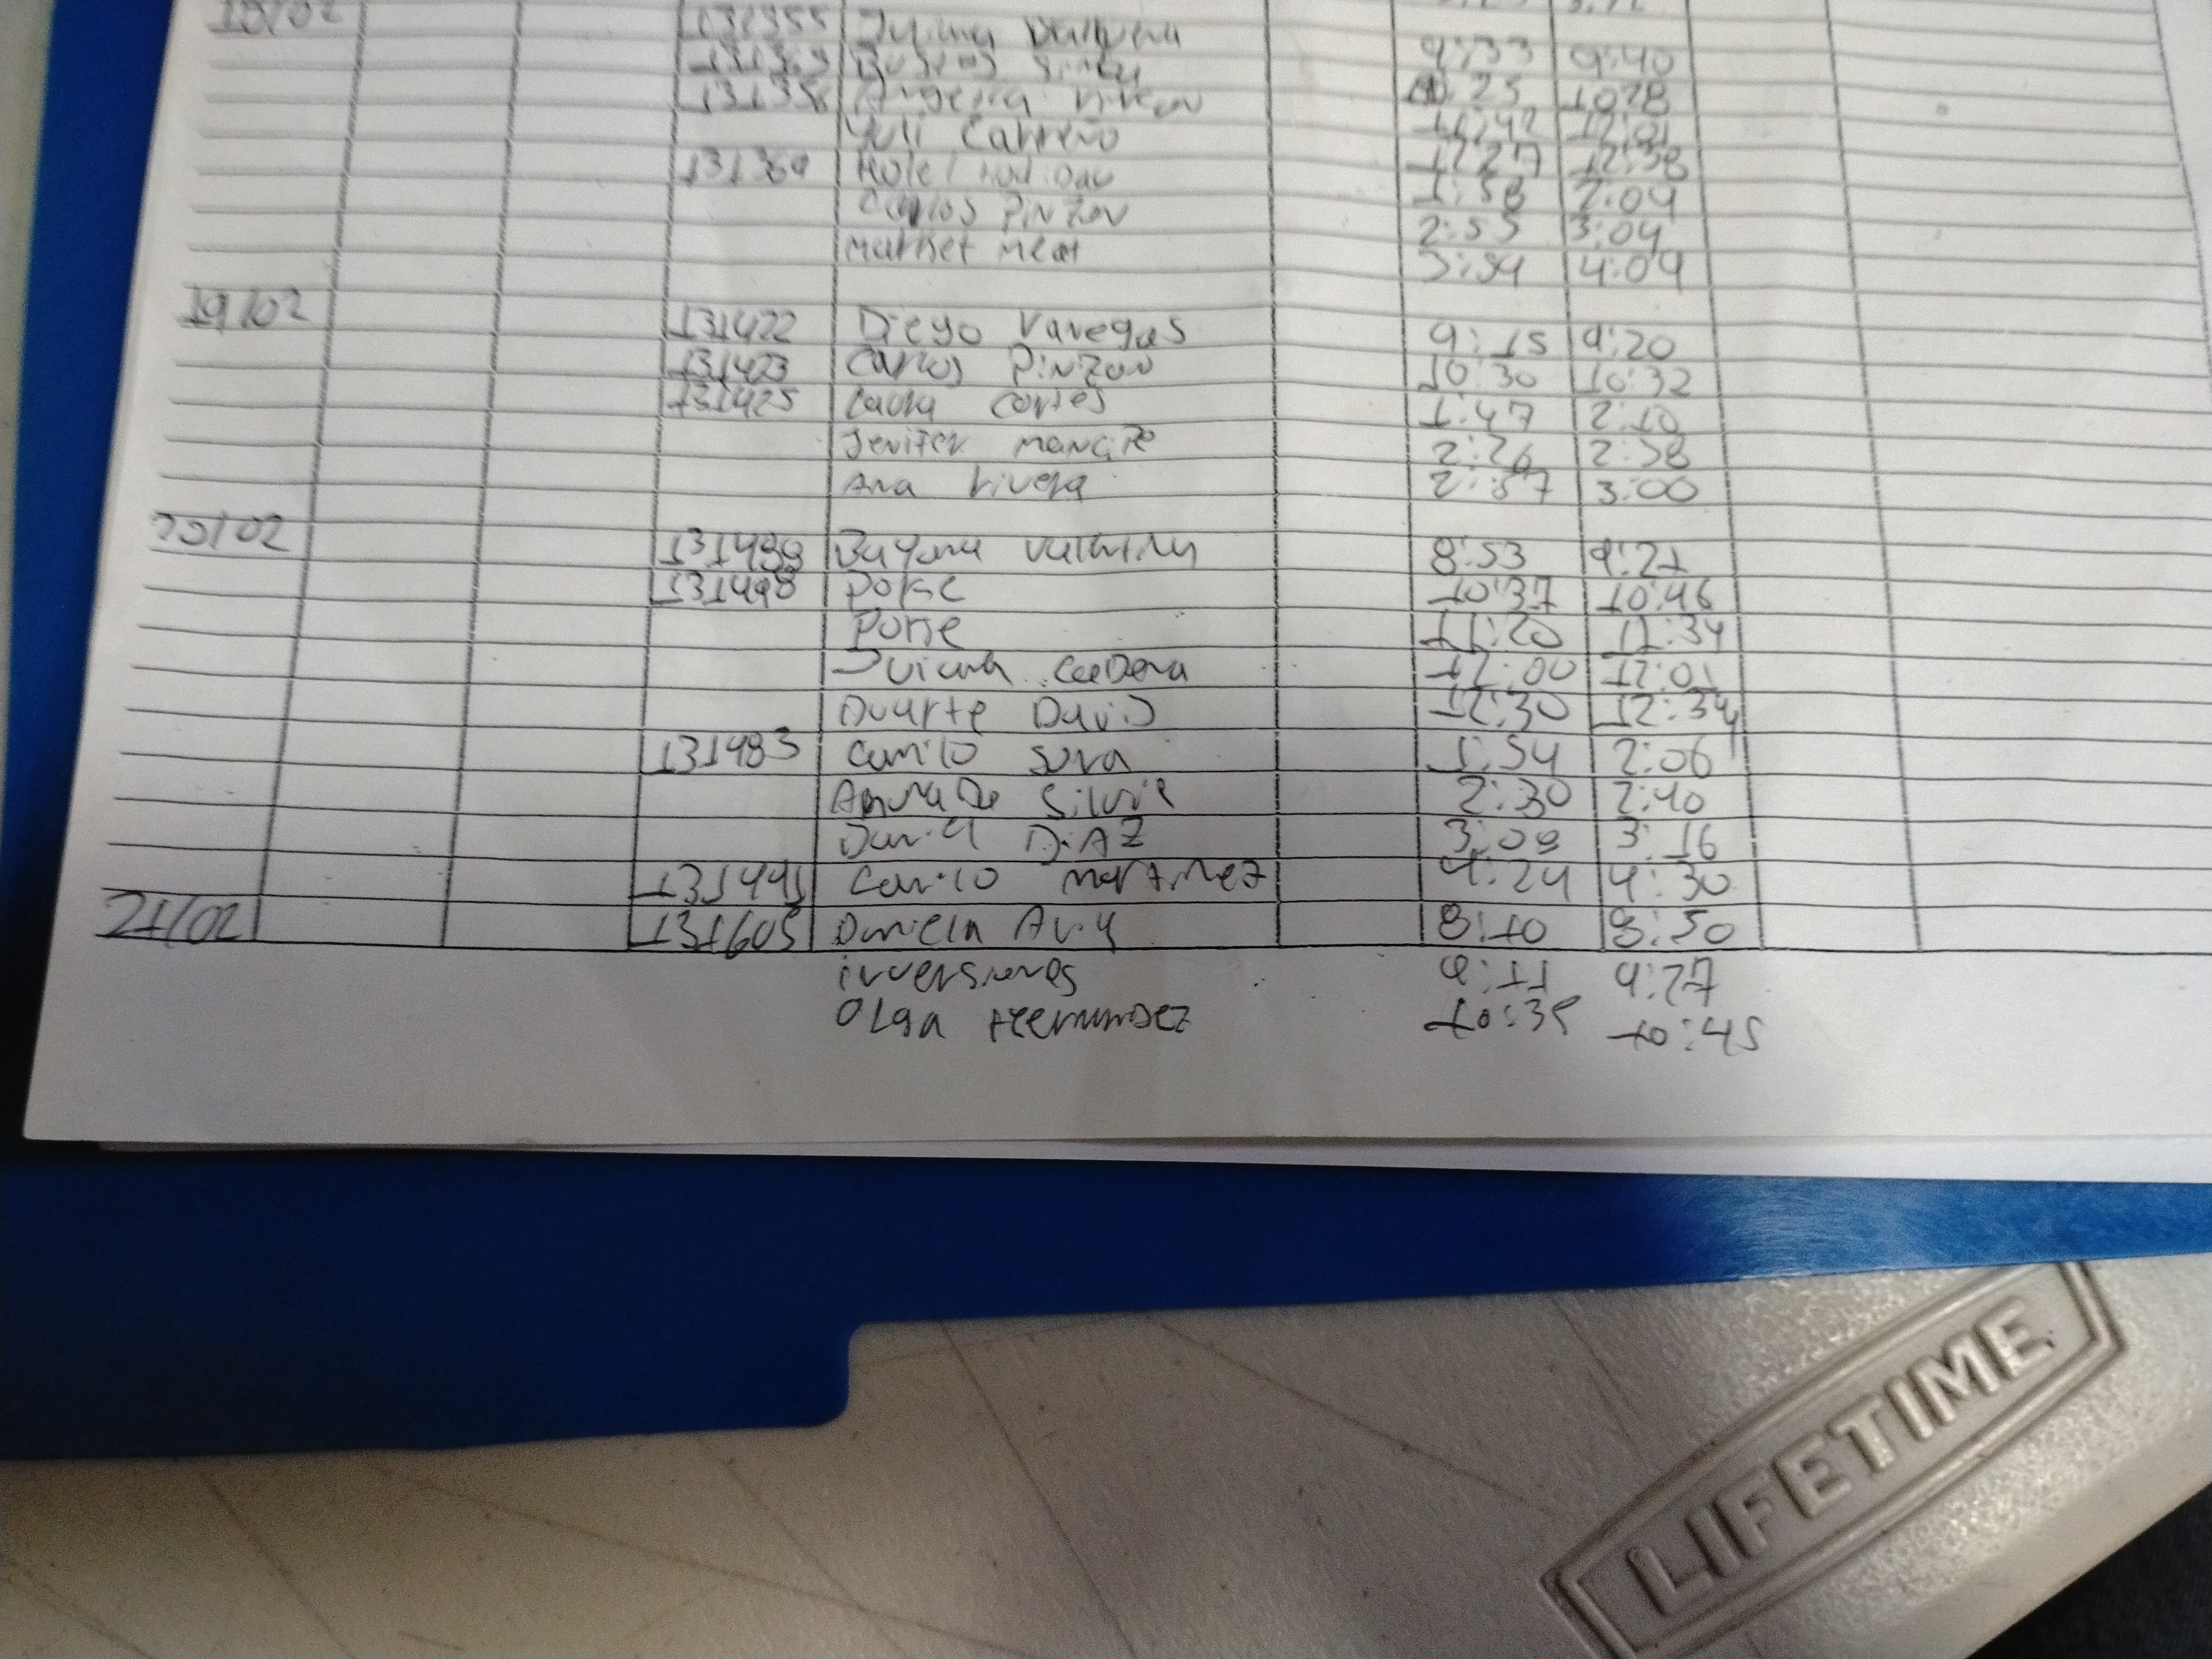 18/02 131355
9:33 9:40
25 1028
Yuli Carreño 11:42 12:01
131364 Hotel 12:27 12:38
Carlos Pinzon 1:58 2:04
market meat 2:55 3:04
3:54 4:09
19/02 131422 Diego Vanegas 9:15 9:20
131423 Carlos Pinzon 10:30 10:32
131425 Laura cortes 1:47 2:10
Jenifer 2:26 2:38
Ana rivera 2:57 3:00
20/02 Dayana 8:53 9:21
131498 Poke 10:37 10:46
Poke 11:20 11:34
12:00 12:01
Duarte David 12:30 12:34
131483 Camilo 1:54 2:06
2:30 2:40
Daniel DiAZ 3:09 3:16
Camilo martinez 4:24 4:30
21/02 131605 Daniela 8:10 8:50
inversiones 9:11 9:27
Olga Hernandez 10:35 10:45
LIFETIME